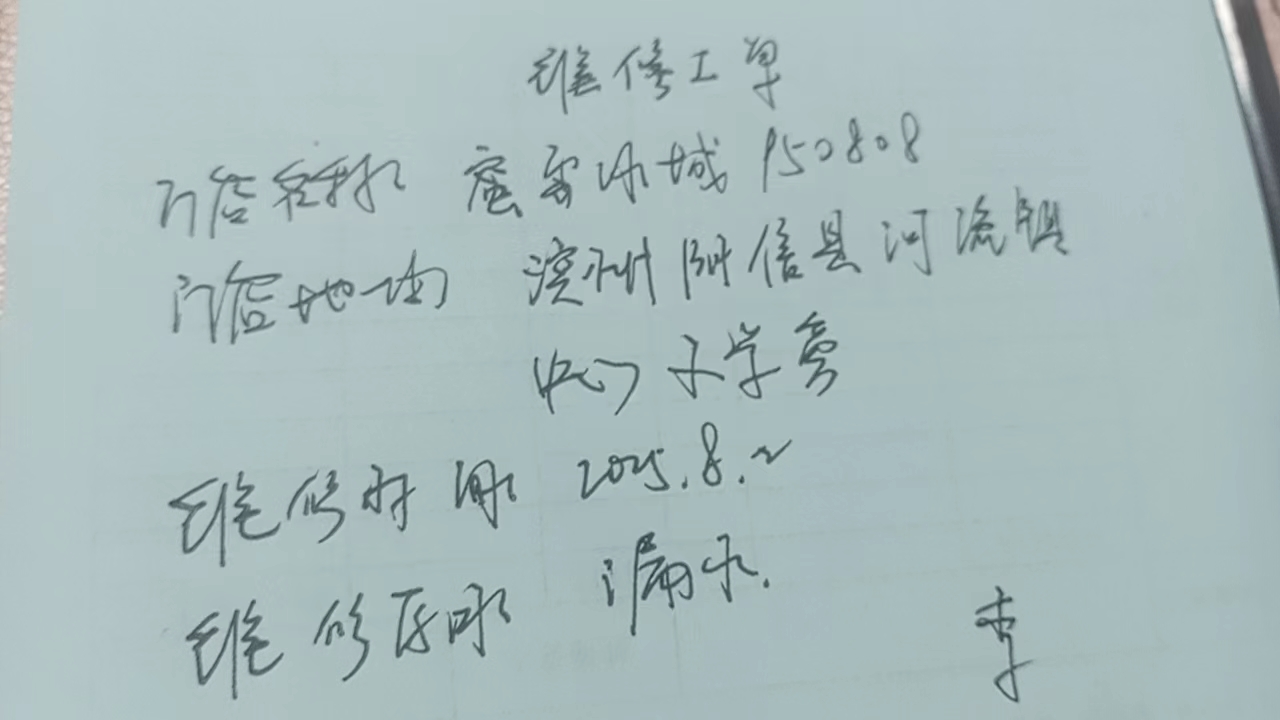 维修工单
门店名称 蜜雪冰城 950808
门店地址 滨州阳信县河流镇
中心大学旁
维修时间 2025.8.2
维修原因 漏水.
李